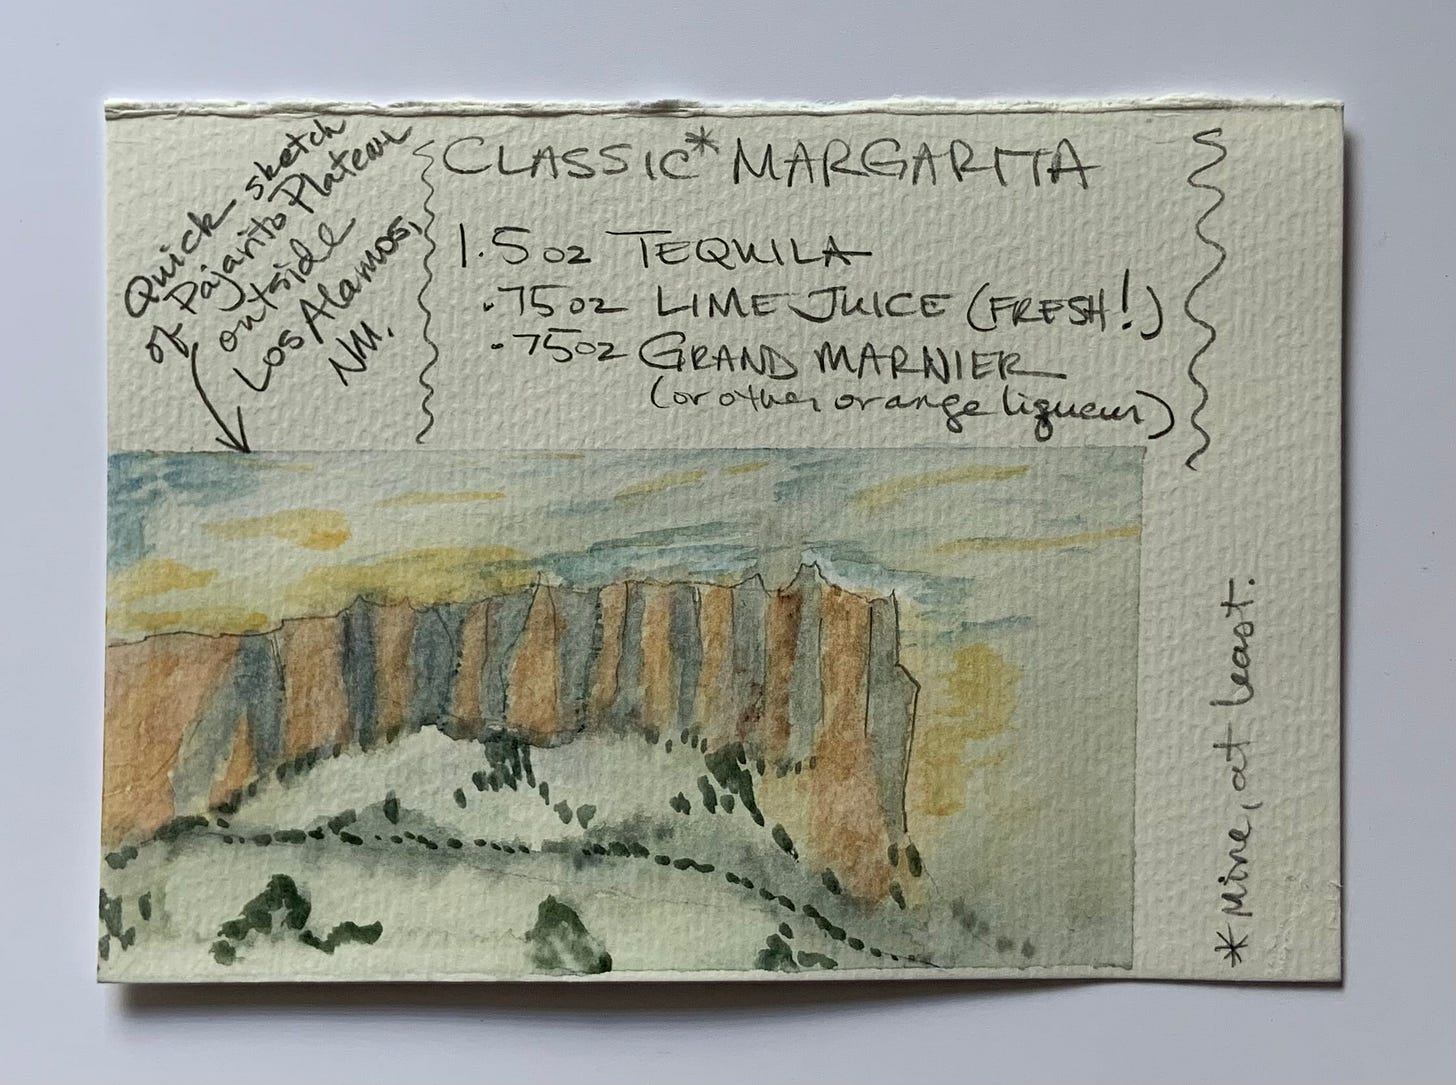 Quick sketch
of Pajarito Plateau
outside
Los Alamos,
NM.
CLASSIC* MARGARITA
1.5 oz TEQUILA
.75 oz LIME JUICE (FRESH!)
.75 oz GRAND MARNIER
(or other orange liqueur)
* Mine, at least.